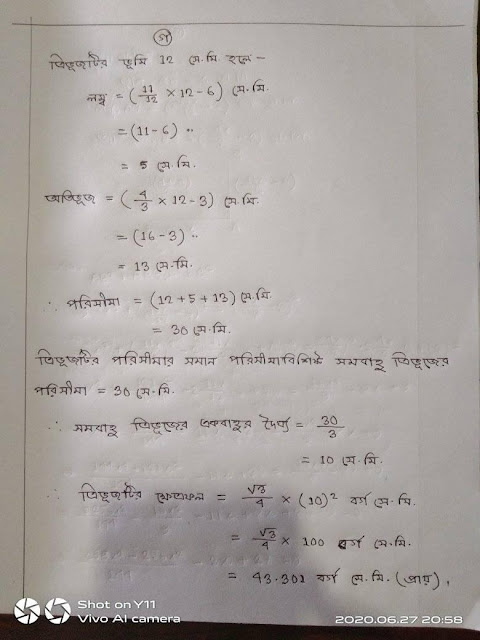 গ
ত্রিভুজটির ভূমি 12 সে.মি. হলে -
লম্ব = (11/12 × 12 - 6) সে.মি.
= (11 - 6) ..
= 5 সে.মি.
অতিভুজ = (4/3 × 12 - 3) সে.মি.
= (16 - 3) ..
= 13 সে.মি.
∴ পরিসীমা = (12 + 5 + 13) সে.মি.
= 30 সে.মি.
ত্রিভুজটির পরিসীমার সমান পরিসীমাবিশিষ্ট সমবাহু ত্রিভুজের
পরিসীমা = 30 সে.মি.
∴ সমবাহু ত্রিভুজের একবাহুর দৈর্ঘ্য = 30/3
= 10 সে.মি.
∴ ত্রিভুজটির ক্ষেত্রফল = √3/4 × (10)² বর্গ সে.মি.
= √3/4 × 100 বর্গ সে.মি.
= 43.301 বর্গ সে.মি. (প্রায়),
Shot on Y11
Vivo AI camera
2020.06.27 20:58